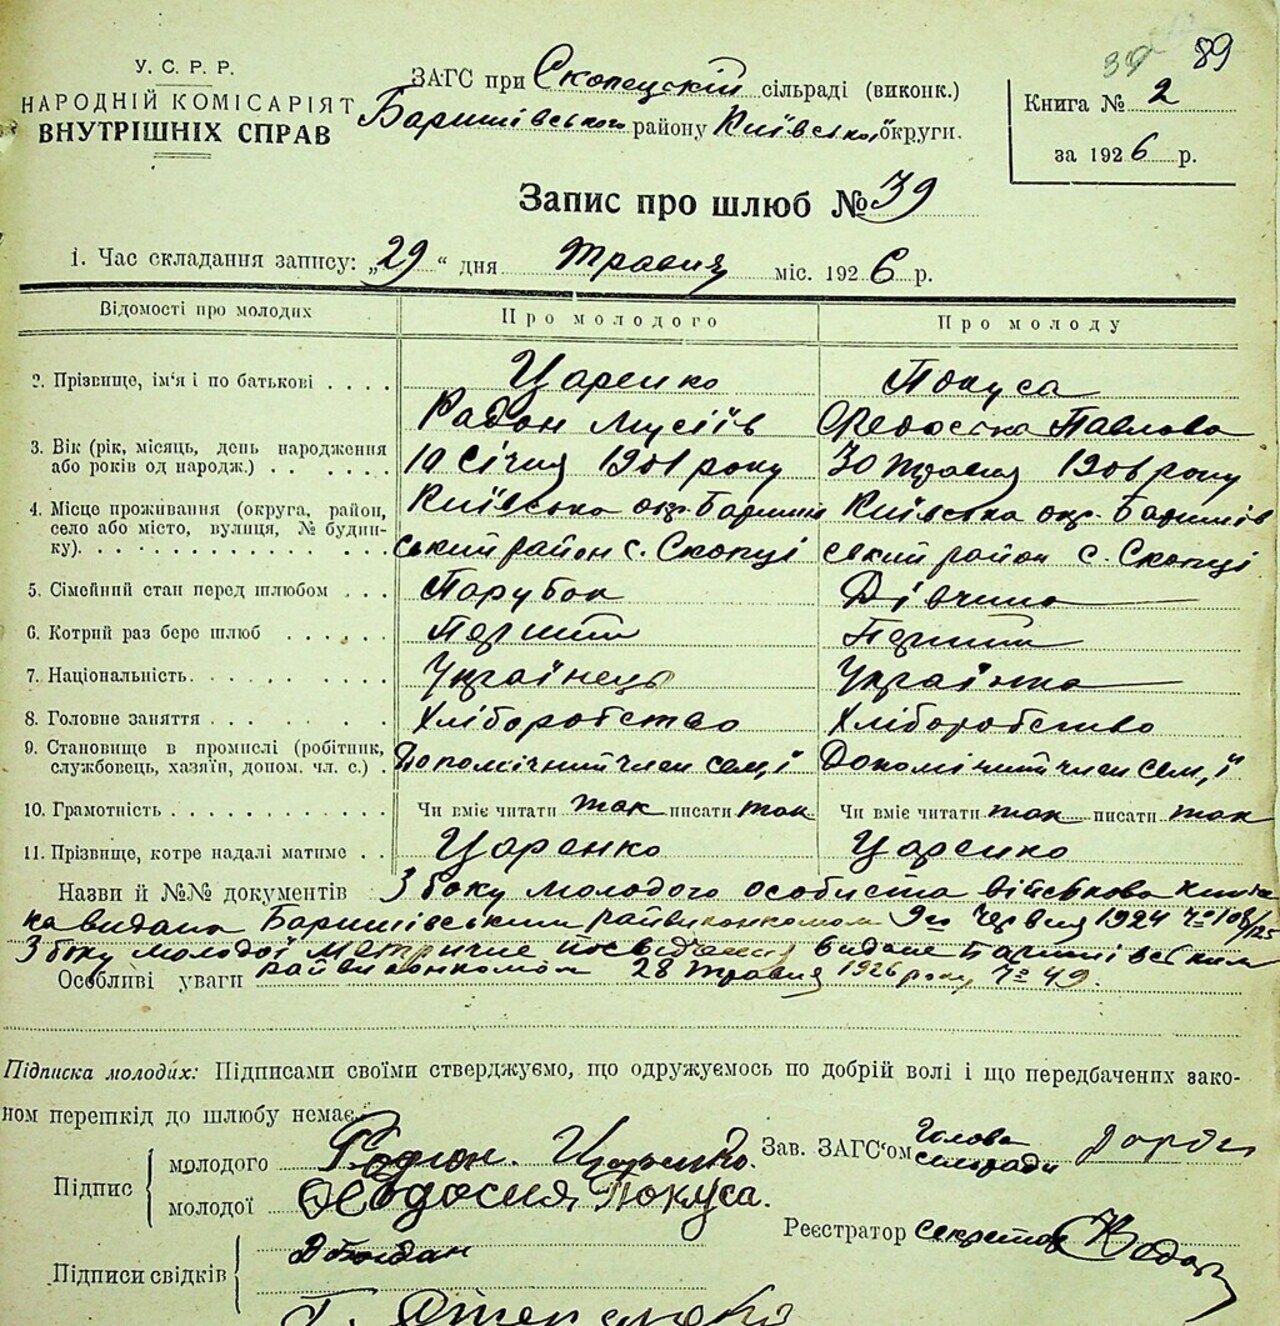 39 89
У. С. Р. Р.
НАРОДНІЙ КОМІСАРІЯТ
ВНУТРІШНІХ СПРАВ
ЗАГС при Скопецскій сільраді (виконк.)
Баришівського району Київсько, округи.
Книга № 2
за 1926 р.
Запис про шлюб № 39
1. Час складання запису: „29“ дня Травня міс. 1926 р.
Відомості про молодих
Про молодого
Про молоду
2. Прізвище, ім'я і по батькові . . . .
Царенко
Радон Мусіїв
Покуса
Федоська Павлова
3. Вік (рік, місяць, день народження
або років од народж.) . . . . . .
10 Січня 1901 року
30 травня 1906 року
4. Місце проживання (округа, район,
село або місто, вулиця, № будин-
ку). . . . . . . . . . . . . . .
Київська окр. Баришів
ський район с. Скопці
Київська окр. Баришів
ський район с. Скопці
5. Сімейний стан перед шлюбом . . .
Парубок
Дівчина
6. Котрий раз бере шлюб . . . . . .
Перший
Перший
7. Національність. . . . . . . . . .
Українець
Українка
8. Головне заняття . . . . . . .
Хліборобство
Хліборобство
9. Становище в промислі (робітник,
службовець, хазяїн, допом. чл. с.) .
Допомічний член сем,ї
Допомічний член сем,ї
10. Грамотність . . . . . . . . . . .
Чи вміє читати так писати так
Чи вміє читати так писати так
11. Прізвище, котре надалі матиме . .
Царенко
Царенко
Назви й №№ документів З боку молодого особиста військова книж
ка видана Баришівським райвиконкомом 9го Червня 1924 ч° 108/125
З боку молодої Метричне посвідчення видане Баришівським
Особливі уваги райвиконкомом 28 травня 1926 року, ч° 49.
Підписка молодих: Підписами своїми стверджуємо, що одружуємось по добрій волі і що передбачених зако-
ном перешкід до шлюбу немає.
Підпис
молодого Родіон Царенко.
молодої Февдосия Покуса.
Зав. ЗАГС'ом Голова
сільради
Реєстратор Секретар
Підписи свідків